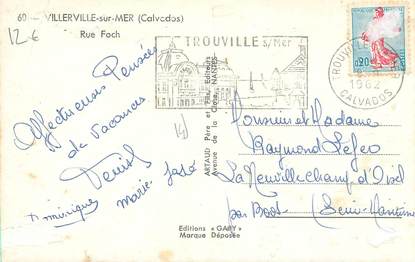 60 — VILLERVILLE-sur-MER (Calvados)
Rue Foch
12-6
TROUVILLE s/Mer
TROUVILLE
1962
CALVADOS
0,20
Affectueuses Pensées
de Vacances
Denis
José
Marie
Dominique
ARTAUD Père et Fils, Editeurs
NANTES
Monsieur et Madame
Raymond
La Neuville champ d'Oisel
par Boos (Seine-Maritime
Editions « GABY »
Marque Déposée